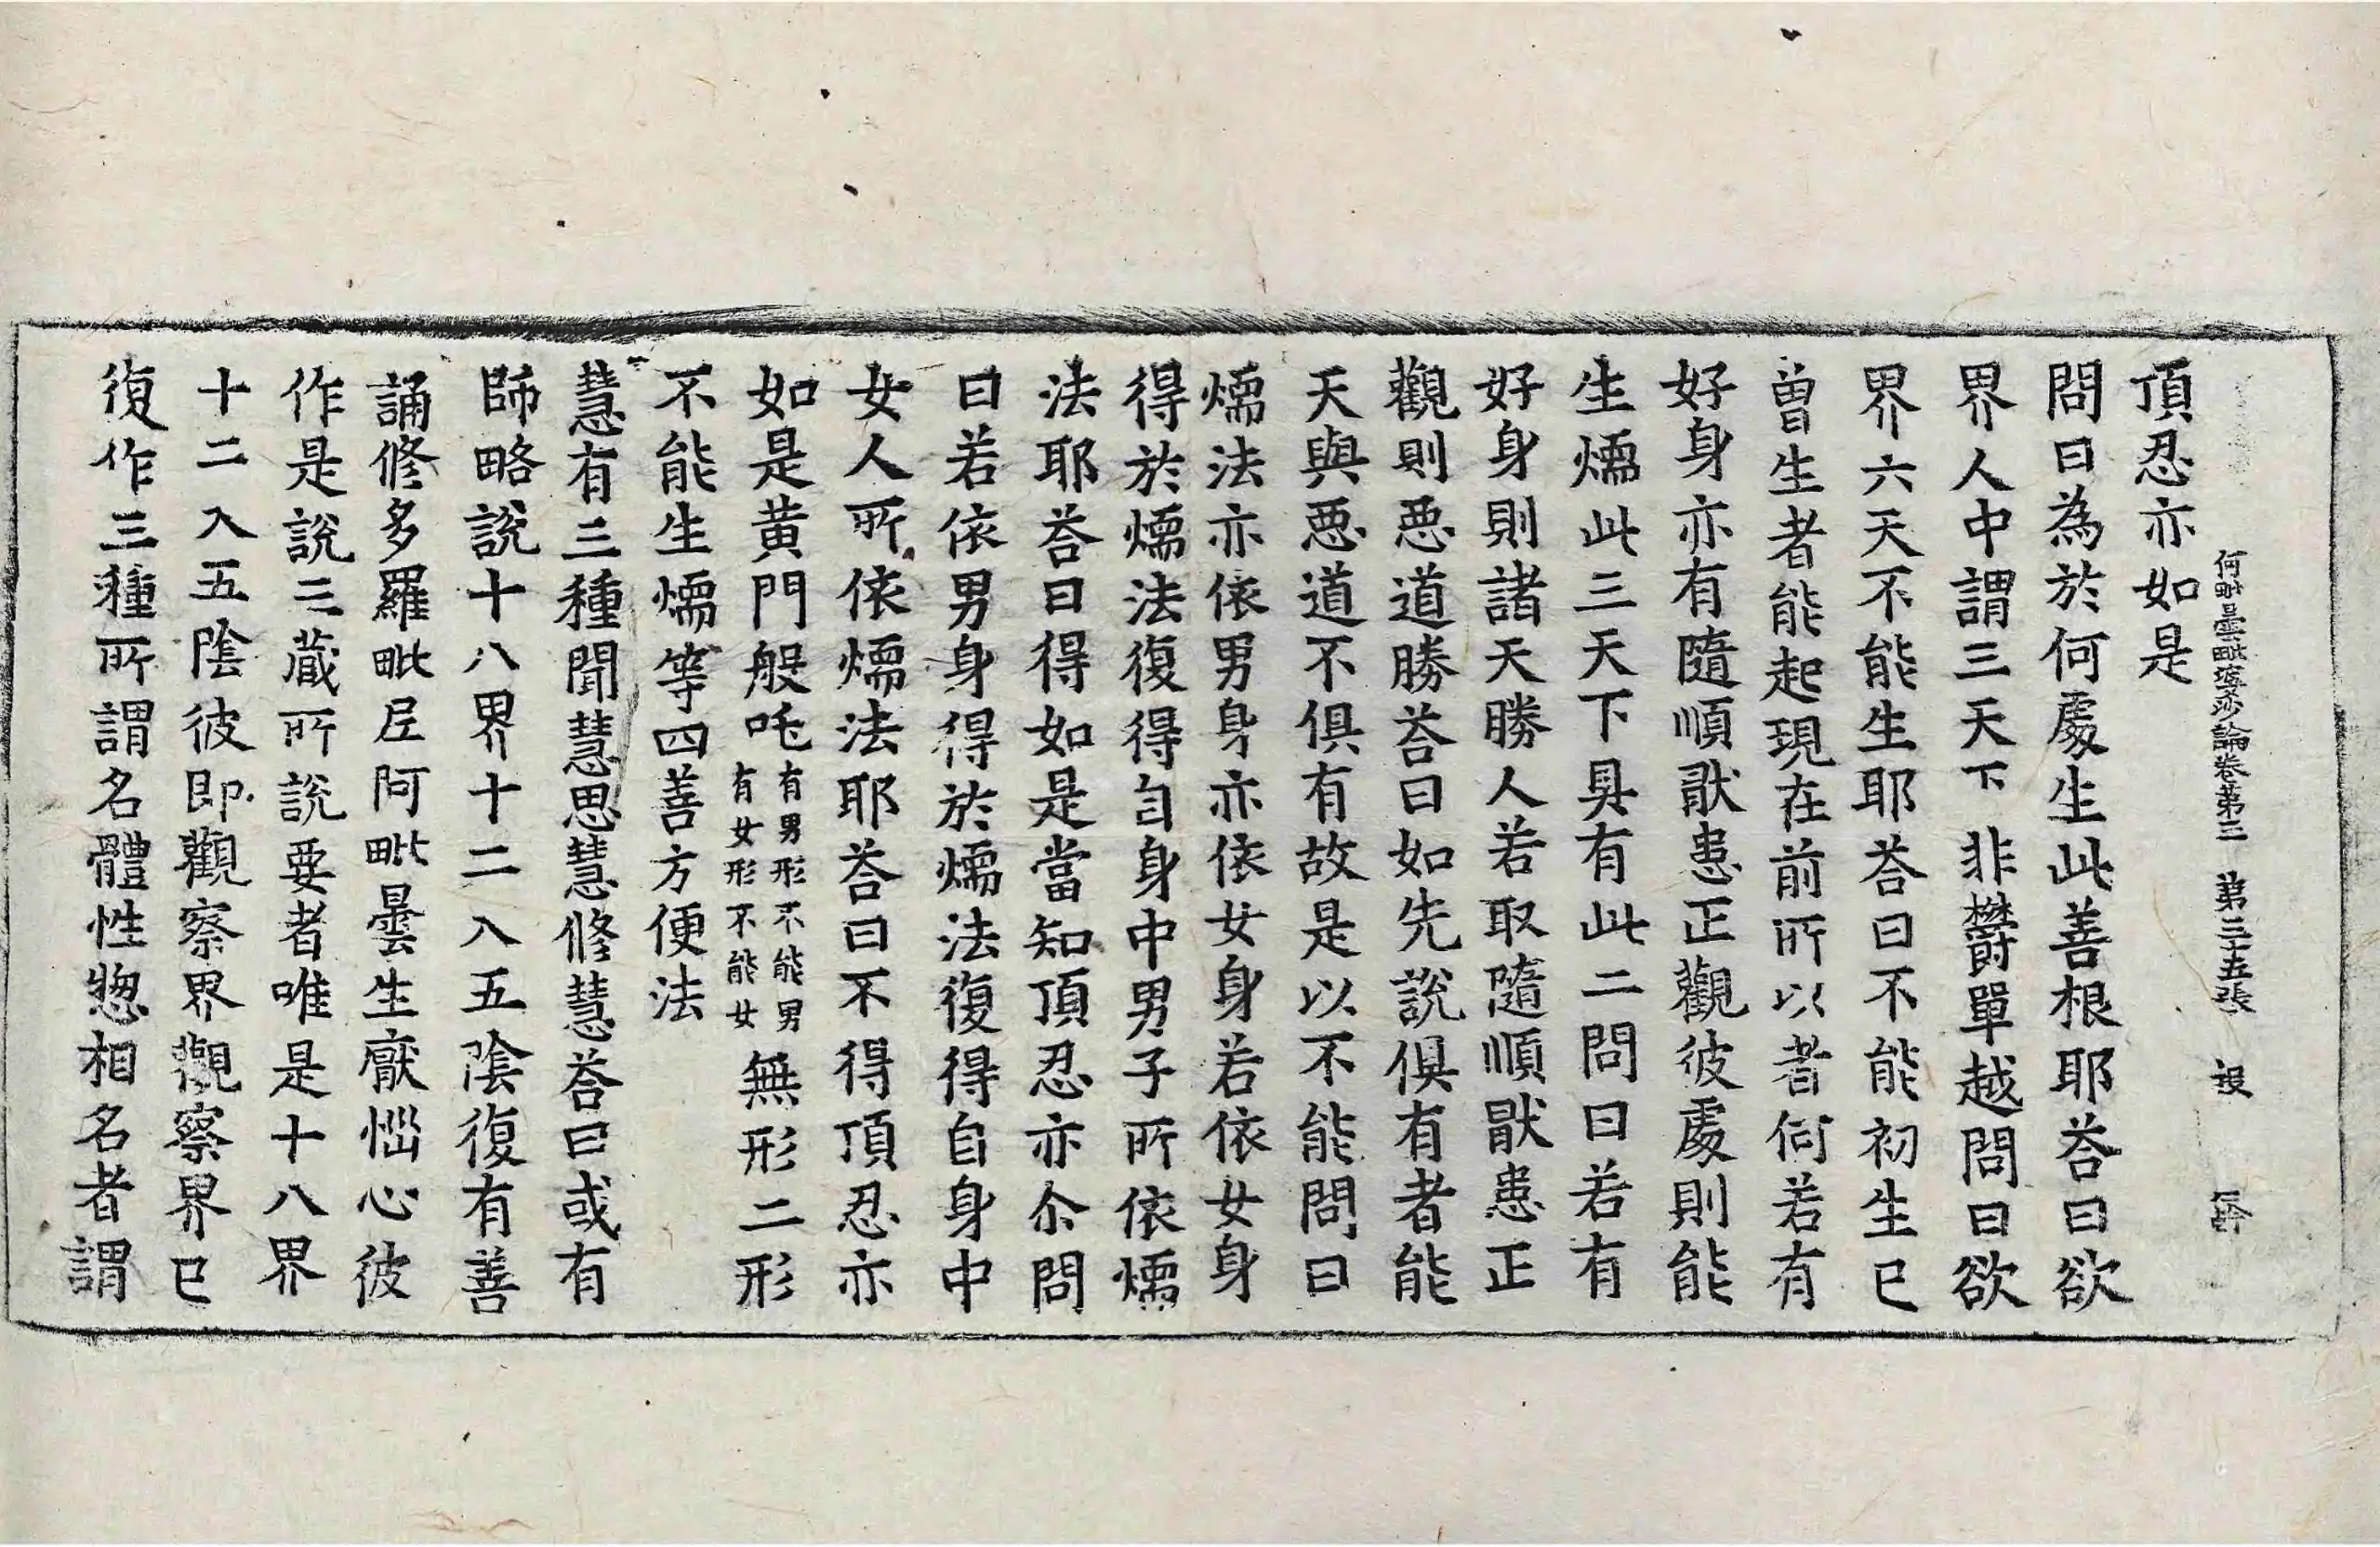 阿毗曇毗婆沙論卷第三 第三十五張 投
頂忍亦如是
問曰為於何處生此善根耶荅曰欲
界人中謂三天下非欝單越問曰欲
界六天不能生耶荅曰不能初生已
曾生者能起現在前所以者何若有
好身亦有隨順猒患正觀彼處則能
生煗此三天下具有此二問曰若有
好身則諸天勝人若取隨順猒患正
觀則惡道勝荅曰如先說俱有者能
天與惡道不俱有故是以不能問曰
煗法亦依男身亦依女身若依女身
得於煗法復得自身中男子所依煗
法耶荅曰得如是當知頂忍亦尒問
曰若依男身得於煗法復得自身中
女人所依煗法耶荅曰不得頂忍亦
如是黃門般吒有男形不能男有女形不能女無形二形
不能生煗等四善方便法
慧有三種聞慧思慧修慧荅曰或有
師略說十八界十二入五陰復有善
誦修多羅毗尼阿毗曇生厭惱心彼
作是說三藏所說要者唯是十八界
十二入五陰彼即觀察界觀察界已
復作三種所謂名體性惣相名者謂